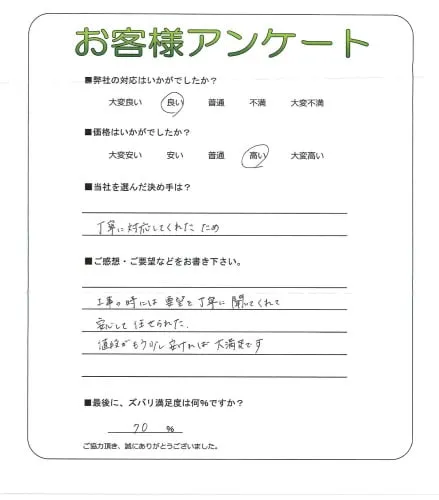 お客様アンケート
■弊社の対応はいかがでしたか？
大変良い 良い 普通 不満 大変不満
■価格はいかがでしたか？
大変安い 安い 普通 高い 大変高い
■当社を選んだ決め手は？
丁寧に対応してくれた ため
■ご感想・ご要望などをお書き下さい。
工事の時には 要望を丁寧に 聞いてくれて
安心して 任せられた.
値段がもう少し安ければ 大満足です
■最後に、ズバリ満足度は何%ですか？
70 %
ご協力頂き、誠にありがとうございました。